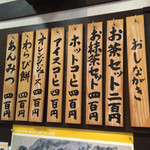 おしながき
お茶セット 二百円
お抹茶セット 四百円
ホットコーヒー 四百円
アイスコーヒー 四百円
オレンジジュース 四百円
わらび餅 四百円
あんみつ 四百円